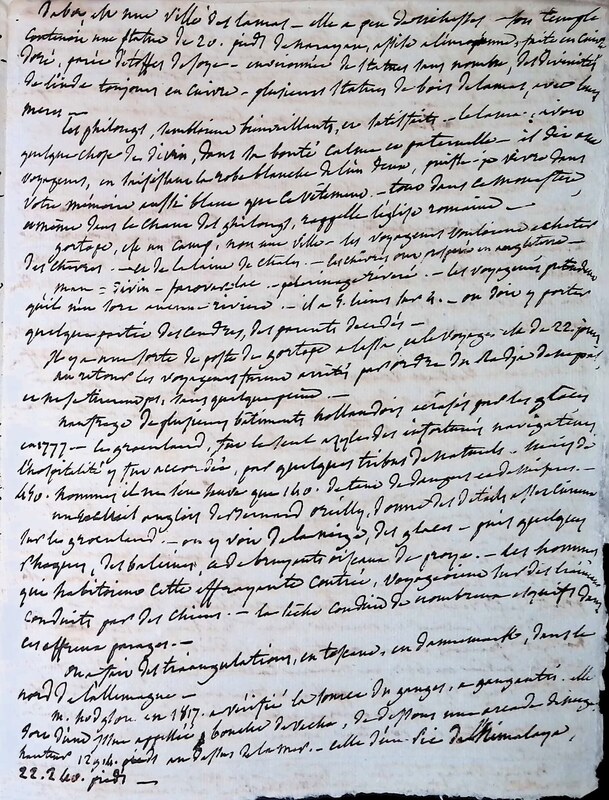 Daba est une ville des lamas — elle a peu de richesses — son temple
contient une statue de 20. pieds de narayan, assise à l'européenne, faite en cuivre
doré, parée d'étoffes de soye — environnée de statues sans nombre, des divinités
de l'inde toujours en cuivre — plusieurs statues de bois de lamas, avec leurs
meres —
les ghilongs, semblent bienveillants, et satisfaits — le lama, avait
quelque chose de divin, dans sa bonté calme et paternelle — il dit aux
voyageurs, en saisissant la robe blanche de l'un d'eux, puissé-je vivre dans
votre mémoire aussi blanc que ce vêtement — tout dans ce monastère,
et même dans le chant des ghilongs, rappelle l'église romaine —
gortope, est un camp, non une ville — les voyageurs voulaient acheter
des chevres. — et de la laine de chales. — les chevres ont prospéré en angleterre —
man = — pelerinage révéré. — les voyageurs prétendent
qu'il n'en sort aucune rivière — il a 5. lieues sur 4. — on doit y porter
quelque partie des cendres, des parents decedés —
Il y a une sorte de poste de gortope à lassa, et le voyage est de 22 jours
au retour les voyageurs furent arrêtés par ordre du Radja de nepal,
et mis à , sans quelque peine. —
naufrage de plusieurs bâtiments hollandois écrasés par les glaces
en 1777. — le groenland, fut le seul asyle des infortunés navigateurs
l'hospitalité y fut accordée, par quelques tribus de naturels —
450. hommes, il ne s'en sauva que 140. de tant de dangers et de . —
un anglois de Bernard oreilly, donne des détails assez curieux
sur le groenland. — on y voit de la neige, des glaces — puis quelques
phoques, des baleines, et de bruyants oiseaux de proye. — les hommes
que habitoient cette effrayante contrée, voyageoient sur des traineaux
conduits par des chiens. — la pêche conduit de nombreux esquifs dans
ces affreux parages. —
On a fait des triangulations, en toscane, en dannemarck, dans le
nord de l'allemagne —
m. hodgson en 1817. a vérifié la source du ganges, a gangautri. elle
sort d'un appellé bouche de vache, de dessous une arcade de neige
hauteur 12914. pieds au dessus de la mer. — celle d'un Pic de l'himalaya,
22.240. pieds —